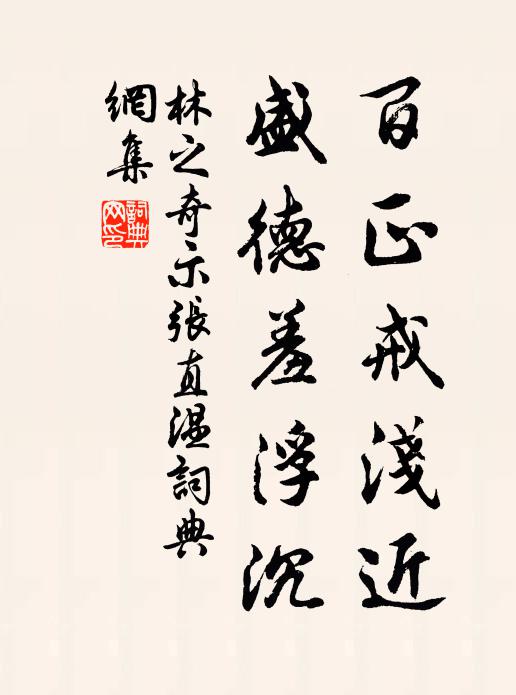 百正戒淺近
盛德羞浮沉
林之奇示張直溫詞典
網集
詞典网印